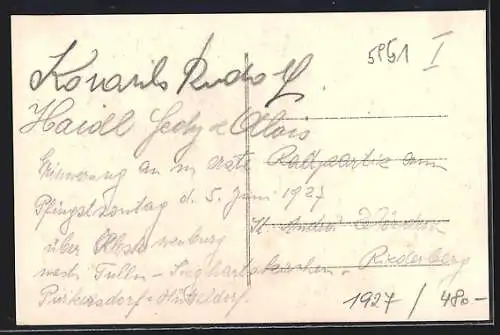 5851 I
Rudolf
Haidl Alois
Erinnerung an m. erste Radpartie am
Pfingstsonntag d. 5. Juni 1927
St. Andrä Wördern
über Klosterneuburg
nach Tulln - Sieghartskirchen - Riederberg
Purkersdorf - Hütteldorf.
1927 / 480-